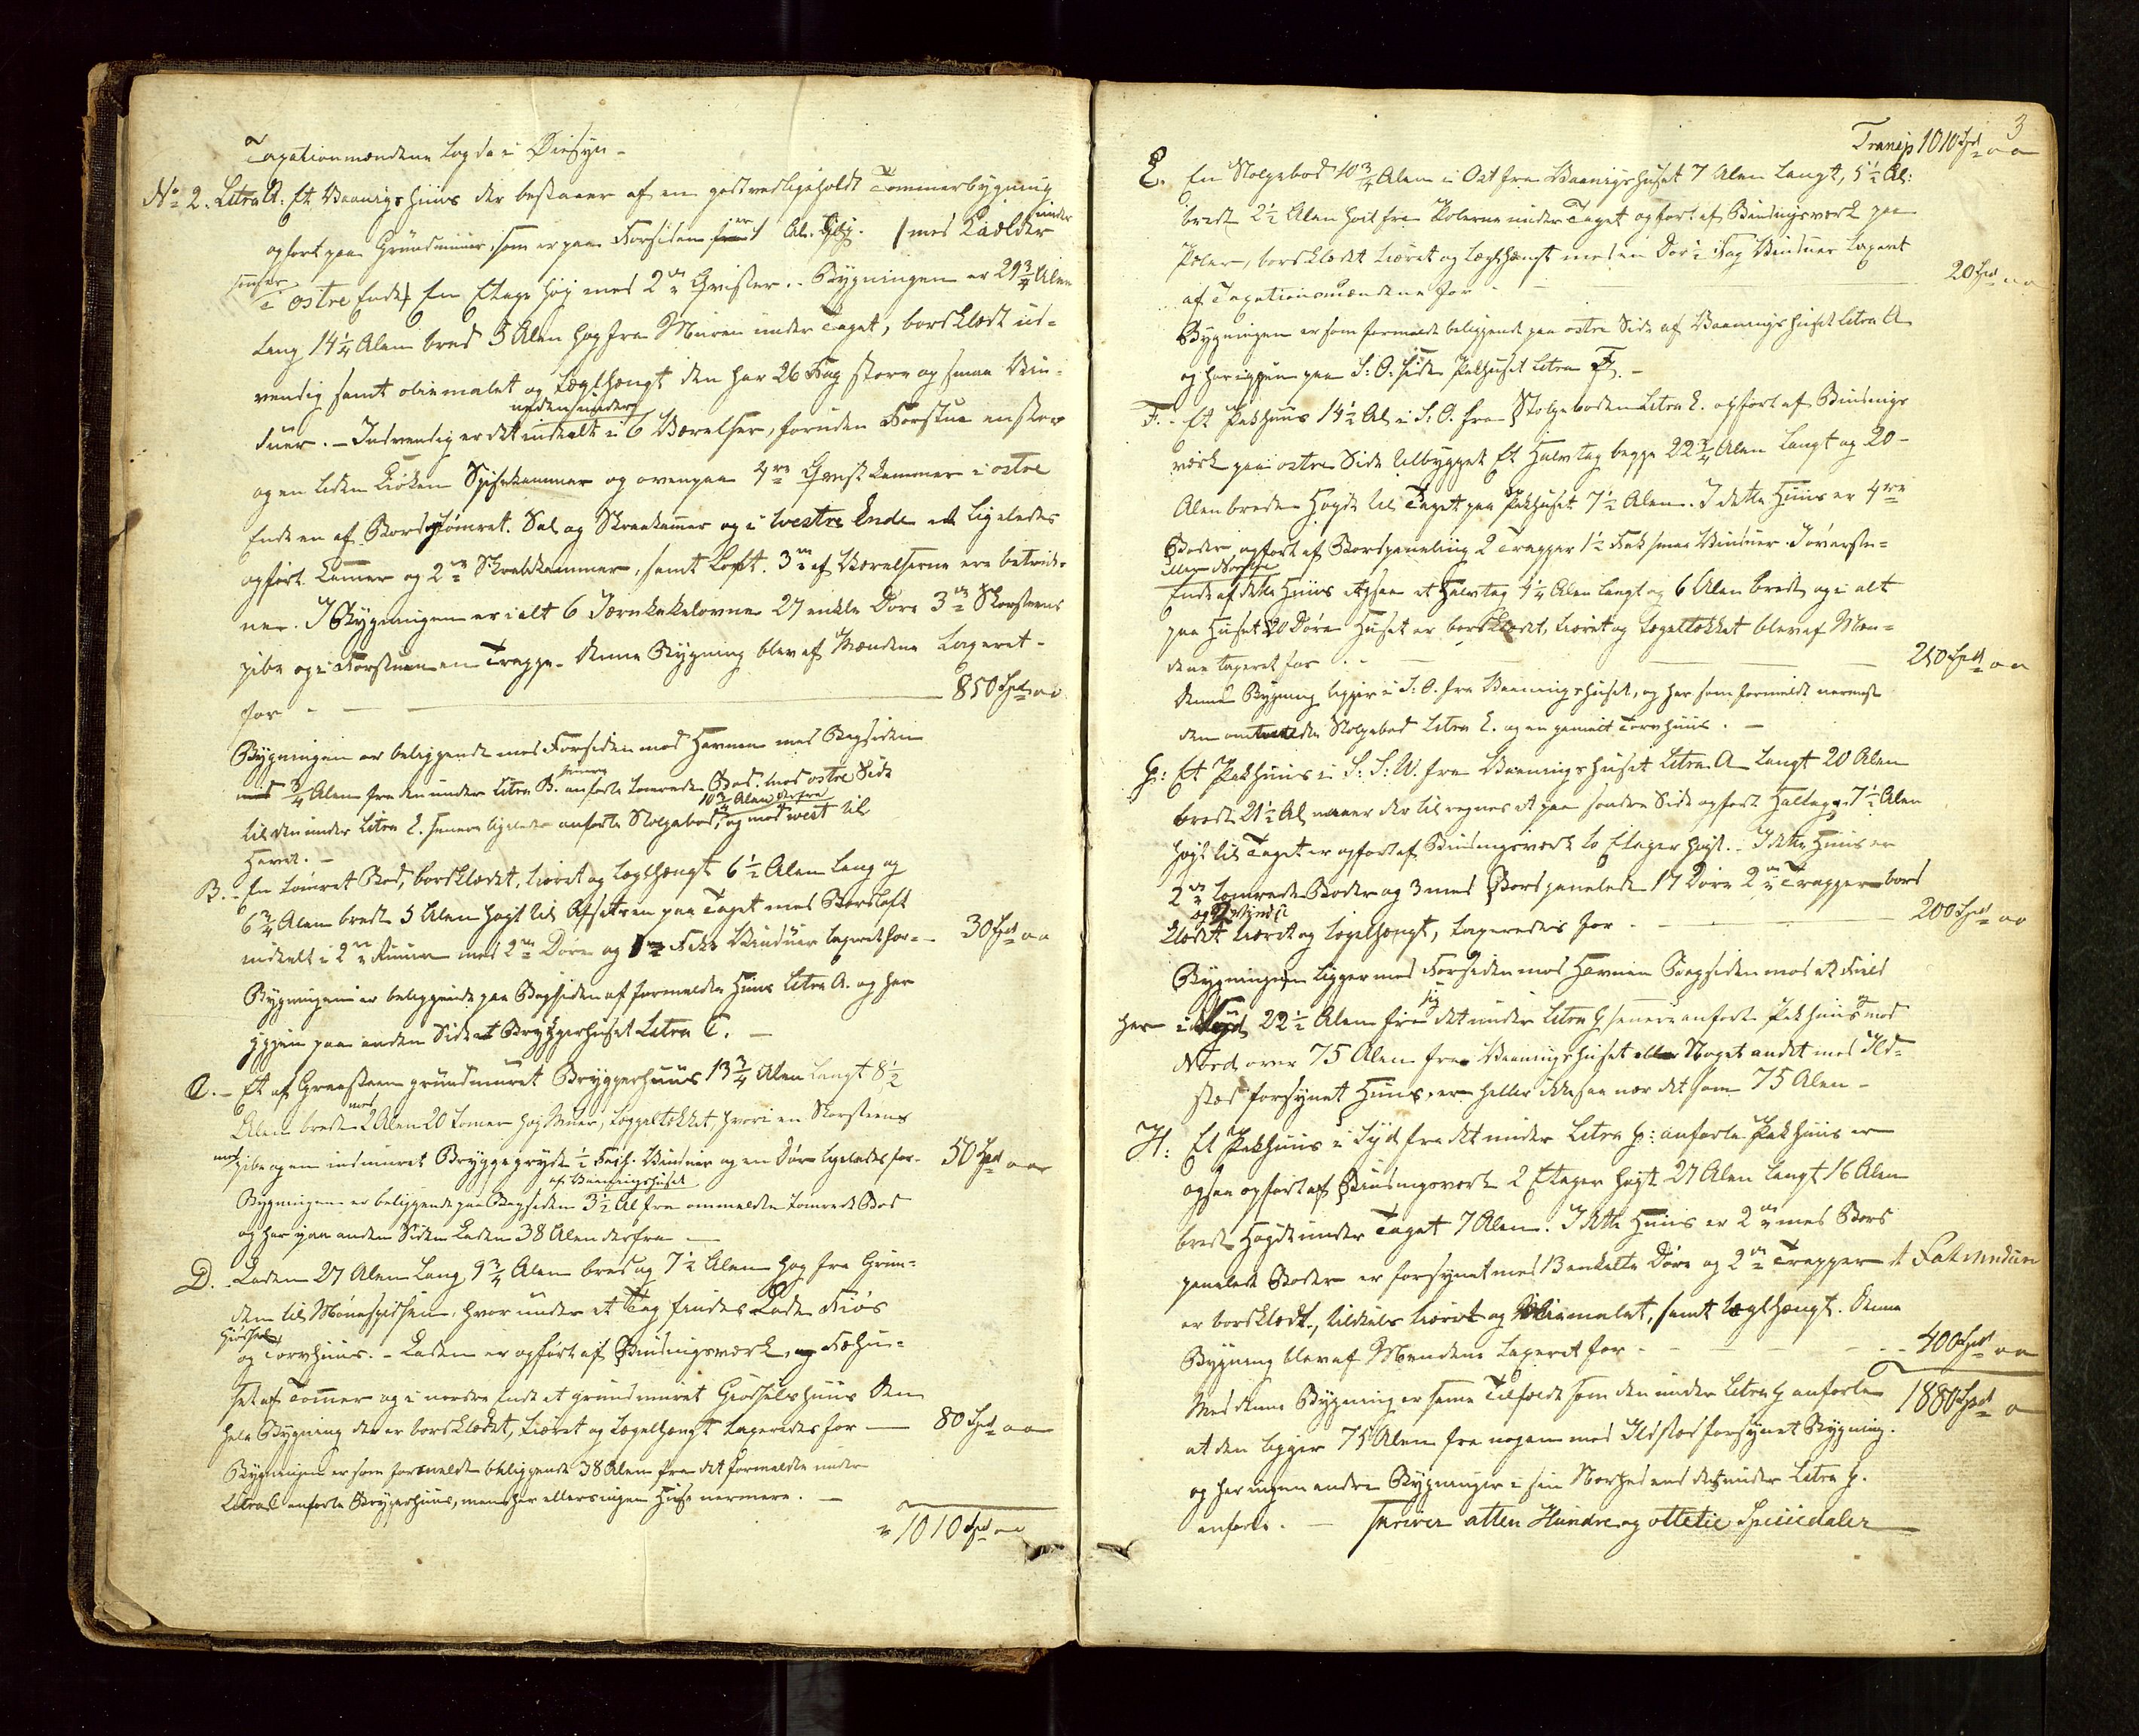 Taxationmændene tog da i Øiesyn –
No 2. Litra A. Et Vaanigshuus der bestaaer af en godt vedligeholdt Tømmerbygning
opført paa Grundmuur, som er paa Forsiden 1 Al. høy. / med Kielder under
i østre Ende / En Etage høy med 2de Qvister. Bygningen er 29 3/4 Alen
lang 14 1/4 Alen bred 5 Alen høy fra Muren under Taget, bordklædt ud-
vendig samt oliemalet og teglhængt den har 26 Fag store og smaa Vin-
duer. – Indvendig er det nedenunder inddelt i 6 Værelser, foruden Forstue en stor
og en liden Kiøken Spisekammer og ovenpaa 4re Qvistkammer i østre
Ende en af Bord optømret Sal og Skraakamer og i westre Ende et ligeledes
opført Kamer og 2de Skraakammer, samt Loft. 3de af Værelserne ere betruk-
ne. I Bygningen er i alt 6 Jernkakelovne 27 enkle Døre 3de Skorsteens
piber og i Forstuen en Trappe. Denne Bygning blev af Mændene taxeret
for – 850 Spd " "
Bygningen er beliggende med Forsiden mod Havnen med Bagsiden
3/4 Alen fra den under Litra B. senere anførte tømrede Bod. mod østre Side
til den under Litra E. senere ligeledes anførte Stolpebod, 10 3/4 Alen derfra og mod west til
Havet. –
B. – En tømret Bod, bordklædt, tiæret og teglhængt 6 1/2 Alen lang og
6 3/4 Alen bredt 5 Alen høyt til Afsatsen paa Taget med Bordloft
inddelt i 2de Rum med 2de Døre og Fakke Vinduer taxeret for – 30 Spd " "
Bygningen er beliggende paa Bagsiden af formeldte Huus Litra A. og har
igjen paa anden Side et Bryggerhuset Litra C. –
C. – Et af Graasteen grundmuret Bryggerhuus 13 3/4 Alen langt 8 1/2
Alen bredt med 2 Alen 20 Tomer høy Muur, teggeltækket, hvori en Skorsteens
pibe og en indmuret Bryggegryde 1/2 Fag Vinduer og en Dør ligeledes for – 50 Spd " "
Bygningen er beliggende paa Bagsiden af Vaaningshuset 3 1/2 Al fra ommeldte tømrede Bod
og har paa anden Siden Laden 38 Alen derfra –
D. Laden 27 Alen lang 9 3/4 Alen bred og 7 1/2 Alen høy fra Grun-
den til Mønespidsen, hvorunder et Tag findes Lade Fiøs
og Torvhuus. – Laden er opført af Bindingsværk, og Fæhu-
set af Tømer og i nordre Ende et grundmuret Giødselshuus Den
hele Bygning der er bordklædt, tiæret og tegelhængt taxeredes for – 80 Spd " "
Bygningen er som formeldt beliggende 38 Alen fra det formeldte under
Litra C anførte Bryggerhuus, men har ellers ingen Huse nærmere. –
1010 Spd " "
3
Transp 1010 Spd " "
E. En Stolpebod 10 3/4 Alen i Ost fra Vaaningshuset 7 Alen langt, 5 1/2 Al:
bredt 2 1/2 Alen høit fra Pælerne under Taget opført af Bindingsverk paa
Pæler, bordklædt tiæret og teglhængt med en Dør Fag Vinduer taxeret
af Taxationsmændene for – 20 Spd " "
Bygningen er som formeldt beliggende paa østre Side af Vaaningshuset Litra A
og har igjen paa S: O. Side Pakhuset Litra F. –
F. – Et Pakhuus 14 1/2 Al i S. O. fra Stolpeboden Litra E. opført af Bindings
værk paa østre Side tilbygget Et Halvtag begge 22 3/4 Alen langt og 20 –
Alen brede Høyde til Taget paa Pakhuset 7 1/2 Alen. I dette Huus er 4re
Boder opført af Bordpaneling 2 Trapper 1 1/2 Fak smaa Vinduer
Ende af dette Huus ogsaa et Halvtag Alen langt og 6 Alen bredt, og i alt
paa Huset 20 Døre Huset er bordklædt, tiæret og tegeltækket blev af Mæn-
dene taxeret for – 250 Spd " "
Denne Bygning ligger i S: O. fra Vaaningshuset, og har som formeldt nærmest
den omtalte Stolpebod Litra E. og en gamelt Torvhuus. –
G: Et Pakhuus i S: S: W. fra Vaaningshuset Litra A langt 20 Alen
bredt 21 1/2 Al, naaer der til regnes et paa søndre Side opført Halvtag, 7 1/2 Alen
høyt til Taget er opført af Bindingsværk to Etager høyt. – I dette Huus er
2de tømrede Boder og 3 med Bord panelede 17 Døre 2de Trapper bord
klædt tiæret og tegelhængt, taxeredes for – 200 Spd " "
Bygningen ligger med Forsiden mod Havnen Bagsiden mod et Field
har i Syd 22 1/2 Alen fra sig det under Litra H senere anførte Pakhuus og mod
Nord over 75 Alen fra Vaaningshuset eller Noget andet med Ild-
sted forsynet Huus, er heller ikke saa nær det som 75 Alen –
H: Et Pakhuus i Syd fra det under Litra G: anførte Pakhuus er
ogsaa opført af Bindingsværk 2 Etager høyt 27 Alen langt 16 Alen
bredt Høyde under Taget 7 Alen. I dette Huus er 2de med Bord
panelede Boder er forsynet med 13 enkelte Døre og 2de Trapper
er bordklædt, tildels tiæret og oliemalet, samt teglhængt. Denne
Bygning blev af Mændene taxeret for – 400 Spd " "
Med denne Bygning er same Tilfælde som den under Litra G anførte 1880 Spd "
at den ligger 75 Alen fra nogen med Ildsted forsynet Bygning.
og har ingen andre Bygninger i sin Nærhed end det under Litra G.
anførte. – skriver atten Hundre og ottetie Speciedaler